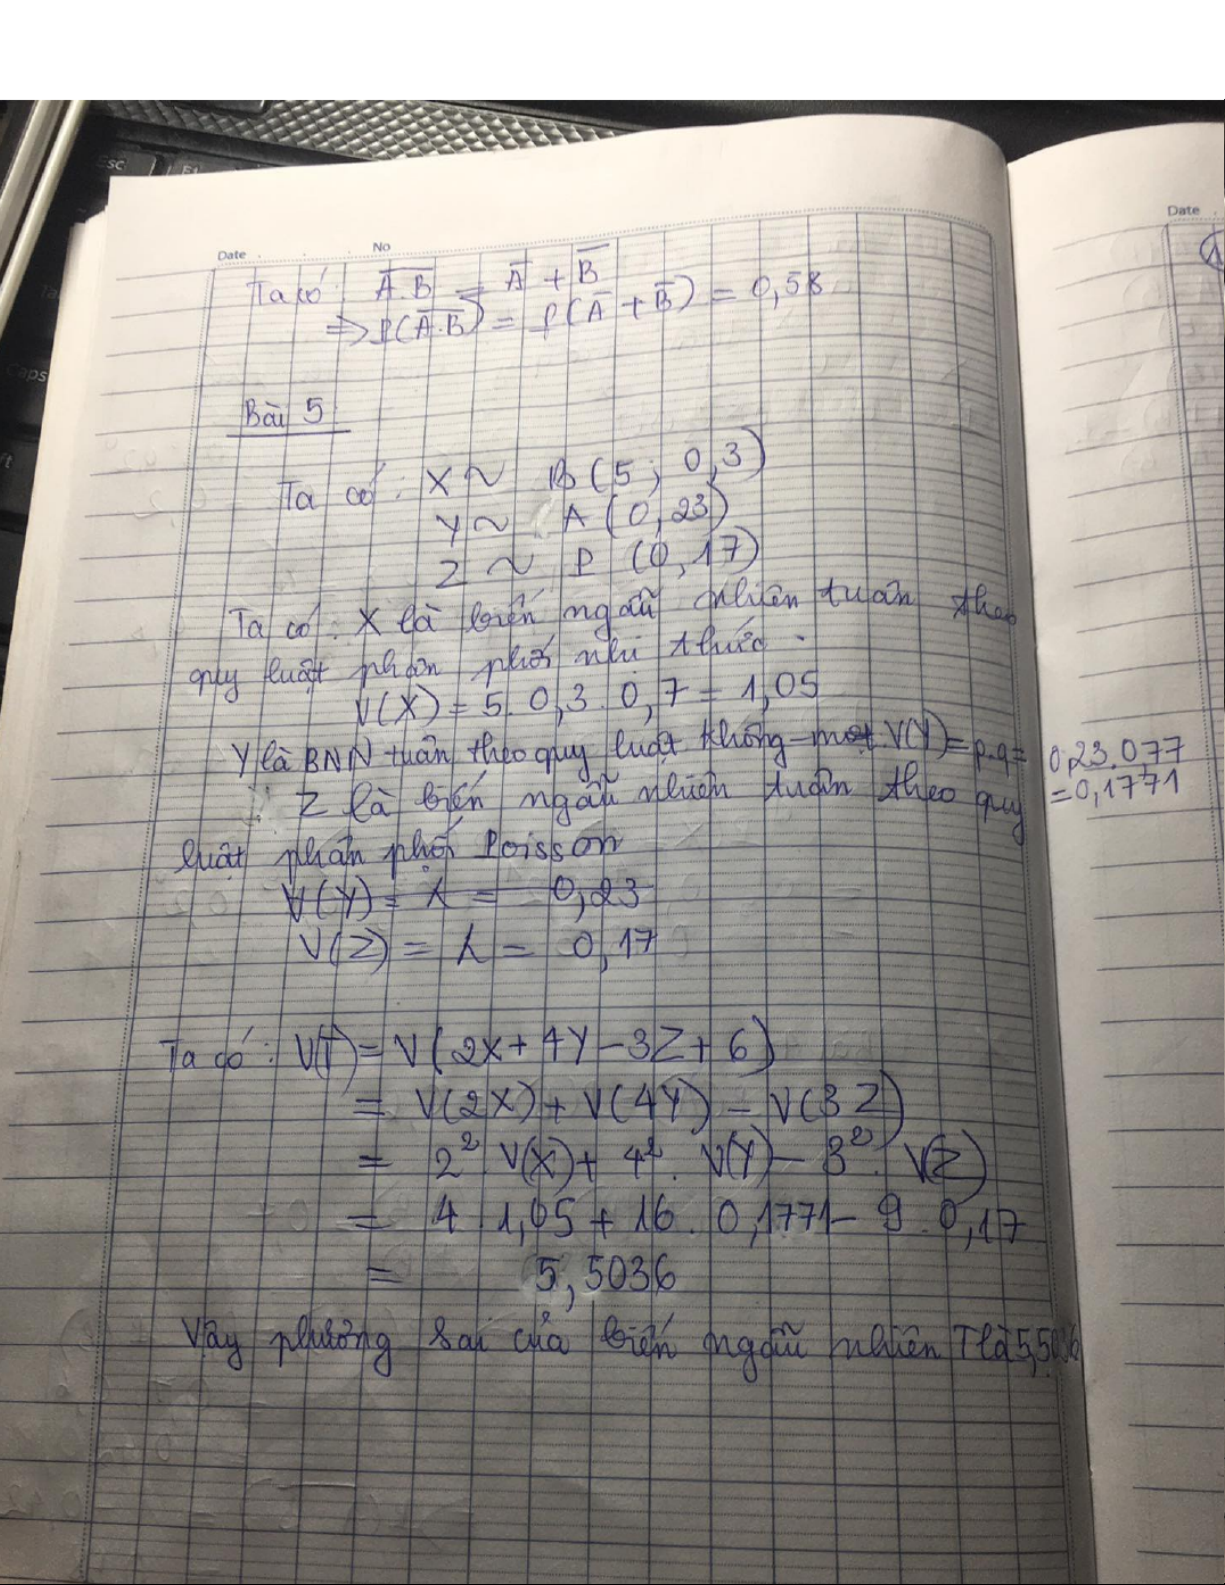 Esc
Date
No
Date
Ta có: \overline{A.B} = \overline{A} + \overline{B}
=> P(\overline{A.B}) = P(\overline{A} + \overline{B}) = 0,58
Bài 5
Ta có: X ~ B(5; 0,3)
Y ~ A(0,23)
Z ~ P(0,17)
Ta có: X là biến ngẫu nhiên tuân theo
quy luật phân phối nhị thức.
V(X) = 5. 0,3. 0,7 = 1,05
Y là BNN tuân theo quy luật không-một. V(Y) = p.q = 0,23.0,77
= 0,1771
Z là biến ngẫu nhiên tuân theo quy
luật phân phối Poisson
V(Y) = λ = 0,23
V(Z) = λ = 0,17
Ta có: V(T) = V(2X + 4Y - 3Z + 6)
= V(2X) + V(4Y) - V(3Z)
= 2². V(X) + 4². V(Y) - 3². V(Z)
= 4. 1,05 + 16. 0,1771 - 9. 0,17
= 5,5036
Vậy phương sai của biến ngẫu nhiên T là 5,5036